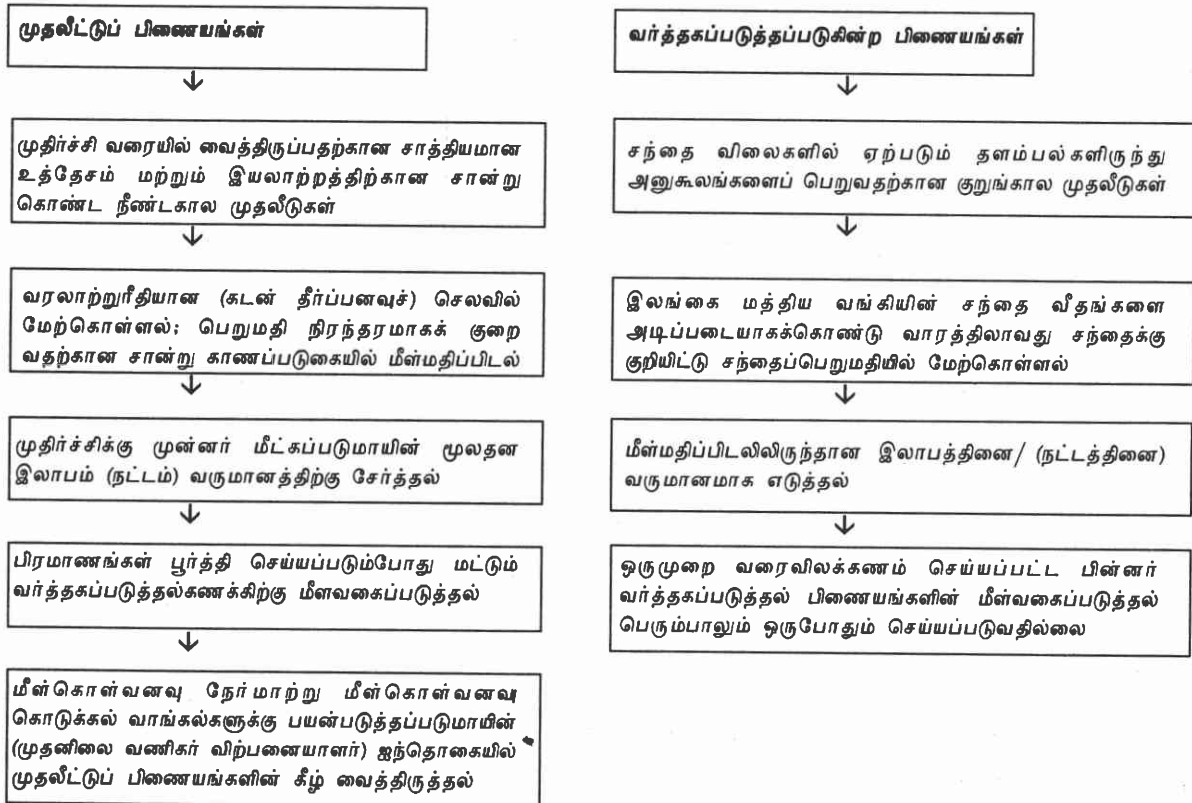 முதலீட்டுப் பிணையங்கள்
முதிர்ச்சி வரையில் வைத்திருப்பதற்கான சாத்தியமான
உத்தேசம் மற்றும் இயலாற்றத்திற்கான சான்று
கொண்ட நீண்டகால முதலீடுகள்
வரலாற்றுரீதியான (கடன் தீர்ப்பனவுச்) செலவில்
மேற்கொள்ளல்; பெறுமதி நிரந்தரமாகக் குறை
வதற்கான சான்று காணப்படுகையில் மீள்மதிப்பிடல்
முதிர்ச்சிக்கு முன்னர் மீட்கப்படுமாயின் மூலதன
இலாபம் (நட்டம்) வருமானத்திற்கு சேர்த்தல்
பிரமாணங்கள் பூர்த்தி செய்யப்படும்போது மட்டும்
வர்த்தகப்படுத்தல்கணக்கிற்கு மீளவகைப்படுத்தல்
மீள்கொள்வனவு நேர்மாற்று மீள்கொள்வனவு
கொடுக்கல் வாங்கல்களுக்கு பயன்படுத்தப்படுமாயின்
(முதனிலை வணிகர் விற்பனையாளர்) ஐந்தொகையில்
முதலீட்டுப் பிணையங்களின் கீழ் வைத்திருத்தல்
வர்த்தகப்படுத்தப்படுகின்ற பிணையங்கள்
சந்தை விலைகளில் ஏற்படும் தளம்பல்களிருந்து
அனுகூலங்களைப் பெறுவதற்கான குறுங்கால முதலீடுகள்
இலங்கை மத்திய வங்கியின் சந்தை வீதங்களை
அடிப்படையாகக்கொண்டு வாரத்திலாவது சந்தைக்கு
குறியிட்டு சந்தைப்பெறுமதியில் மேற்கொள்ளல்
மீள்மதிப்பிடலிலிருந்தான இலாபத்தினை/ (நட்டத்தினை)
வருமானமாக எடுத்தல்
ஒருமுறை வரைவிலக்கணம் செய்யப்பட்ட பின்னர்
வர்த்தகப்படுத்தல் பிணையங்களின் மீள்வகைப்படுத்தல்
பெரும்பாலும் ஒருபோதும் செய்யப்படுவதில்லை